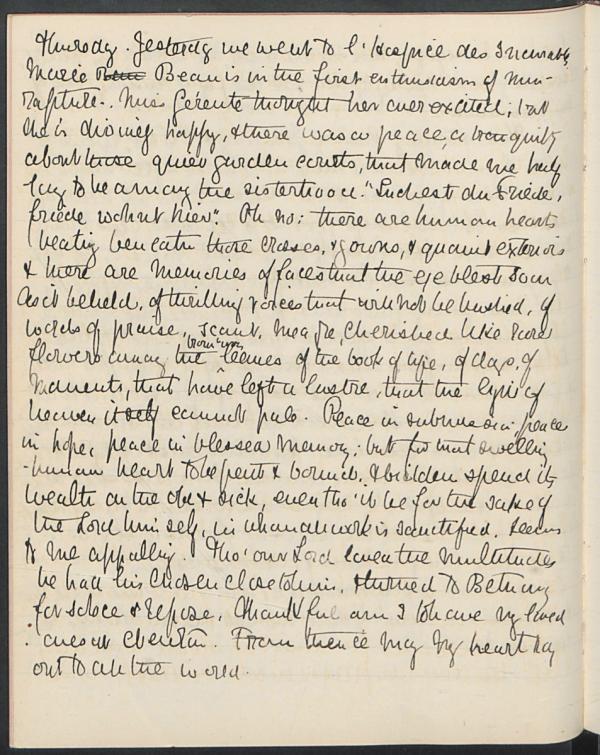 Thursday. Yesterday we went to l'Hospice des Incurables,
Marie Beau is in the first enthusiasm of nun-
rapture. Miss Gérente thought her over excited, but
she is diving happy, & there was a peace, a tranquility
about those quiet garden courts, that made me half
long to be among the sisterhood. "Suchest du Friede,
Friede wohnt hier". Oh no: there are human hearts
beating beneath those crosses, & gowns, & quaint exteriors
& there are memories of faces that the eye blest soon
as it beheld, of thrilling voices that will not be hushed, of
words of praise, scant, meagre, cherished like rare
flowers among the brown leaves of the book of life, of days, of
moments, that have left a lustre, that the light of
heaven itself cannot pale. Peace in submission, peace
in hope, peace in blessed memory; but for that swelling
human heart to be pent & bound, & bidden spend its
wealth on the old & sick, even tho' it be for the sake of
the Lord himself, in whom all work is sanctified, seems
to me appalling. Tho' our Lord loved the multitudes
he had his chosen close to him, & turned to Bethany
for solace & repose. Thankful am I to have my loved
ones at From thence may my heart go
out to all the world.